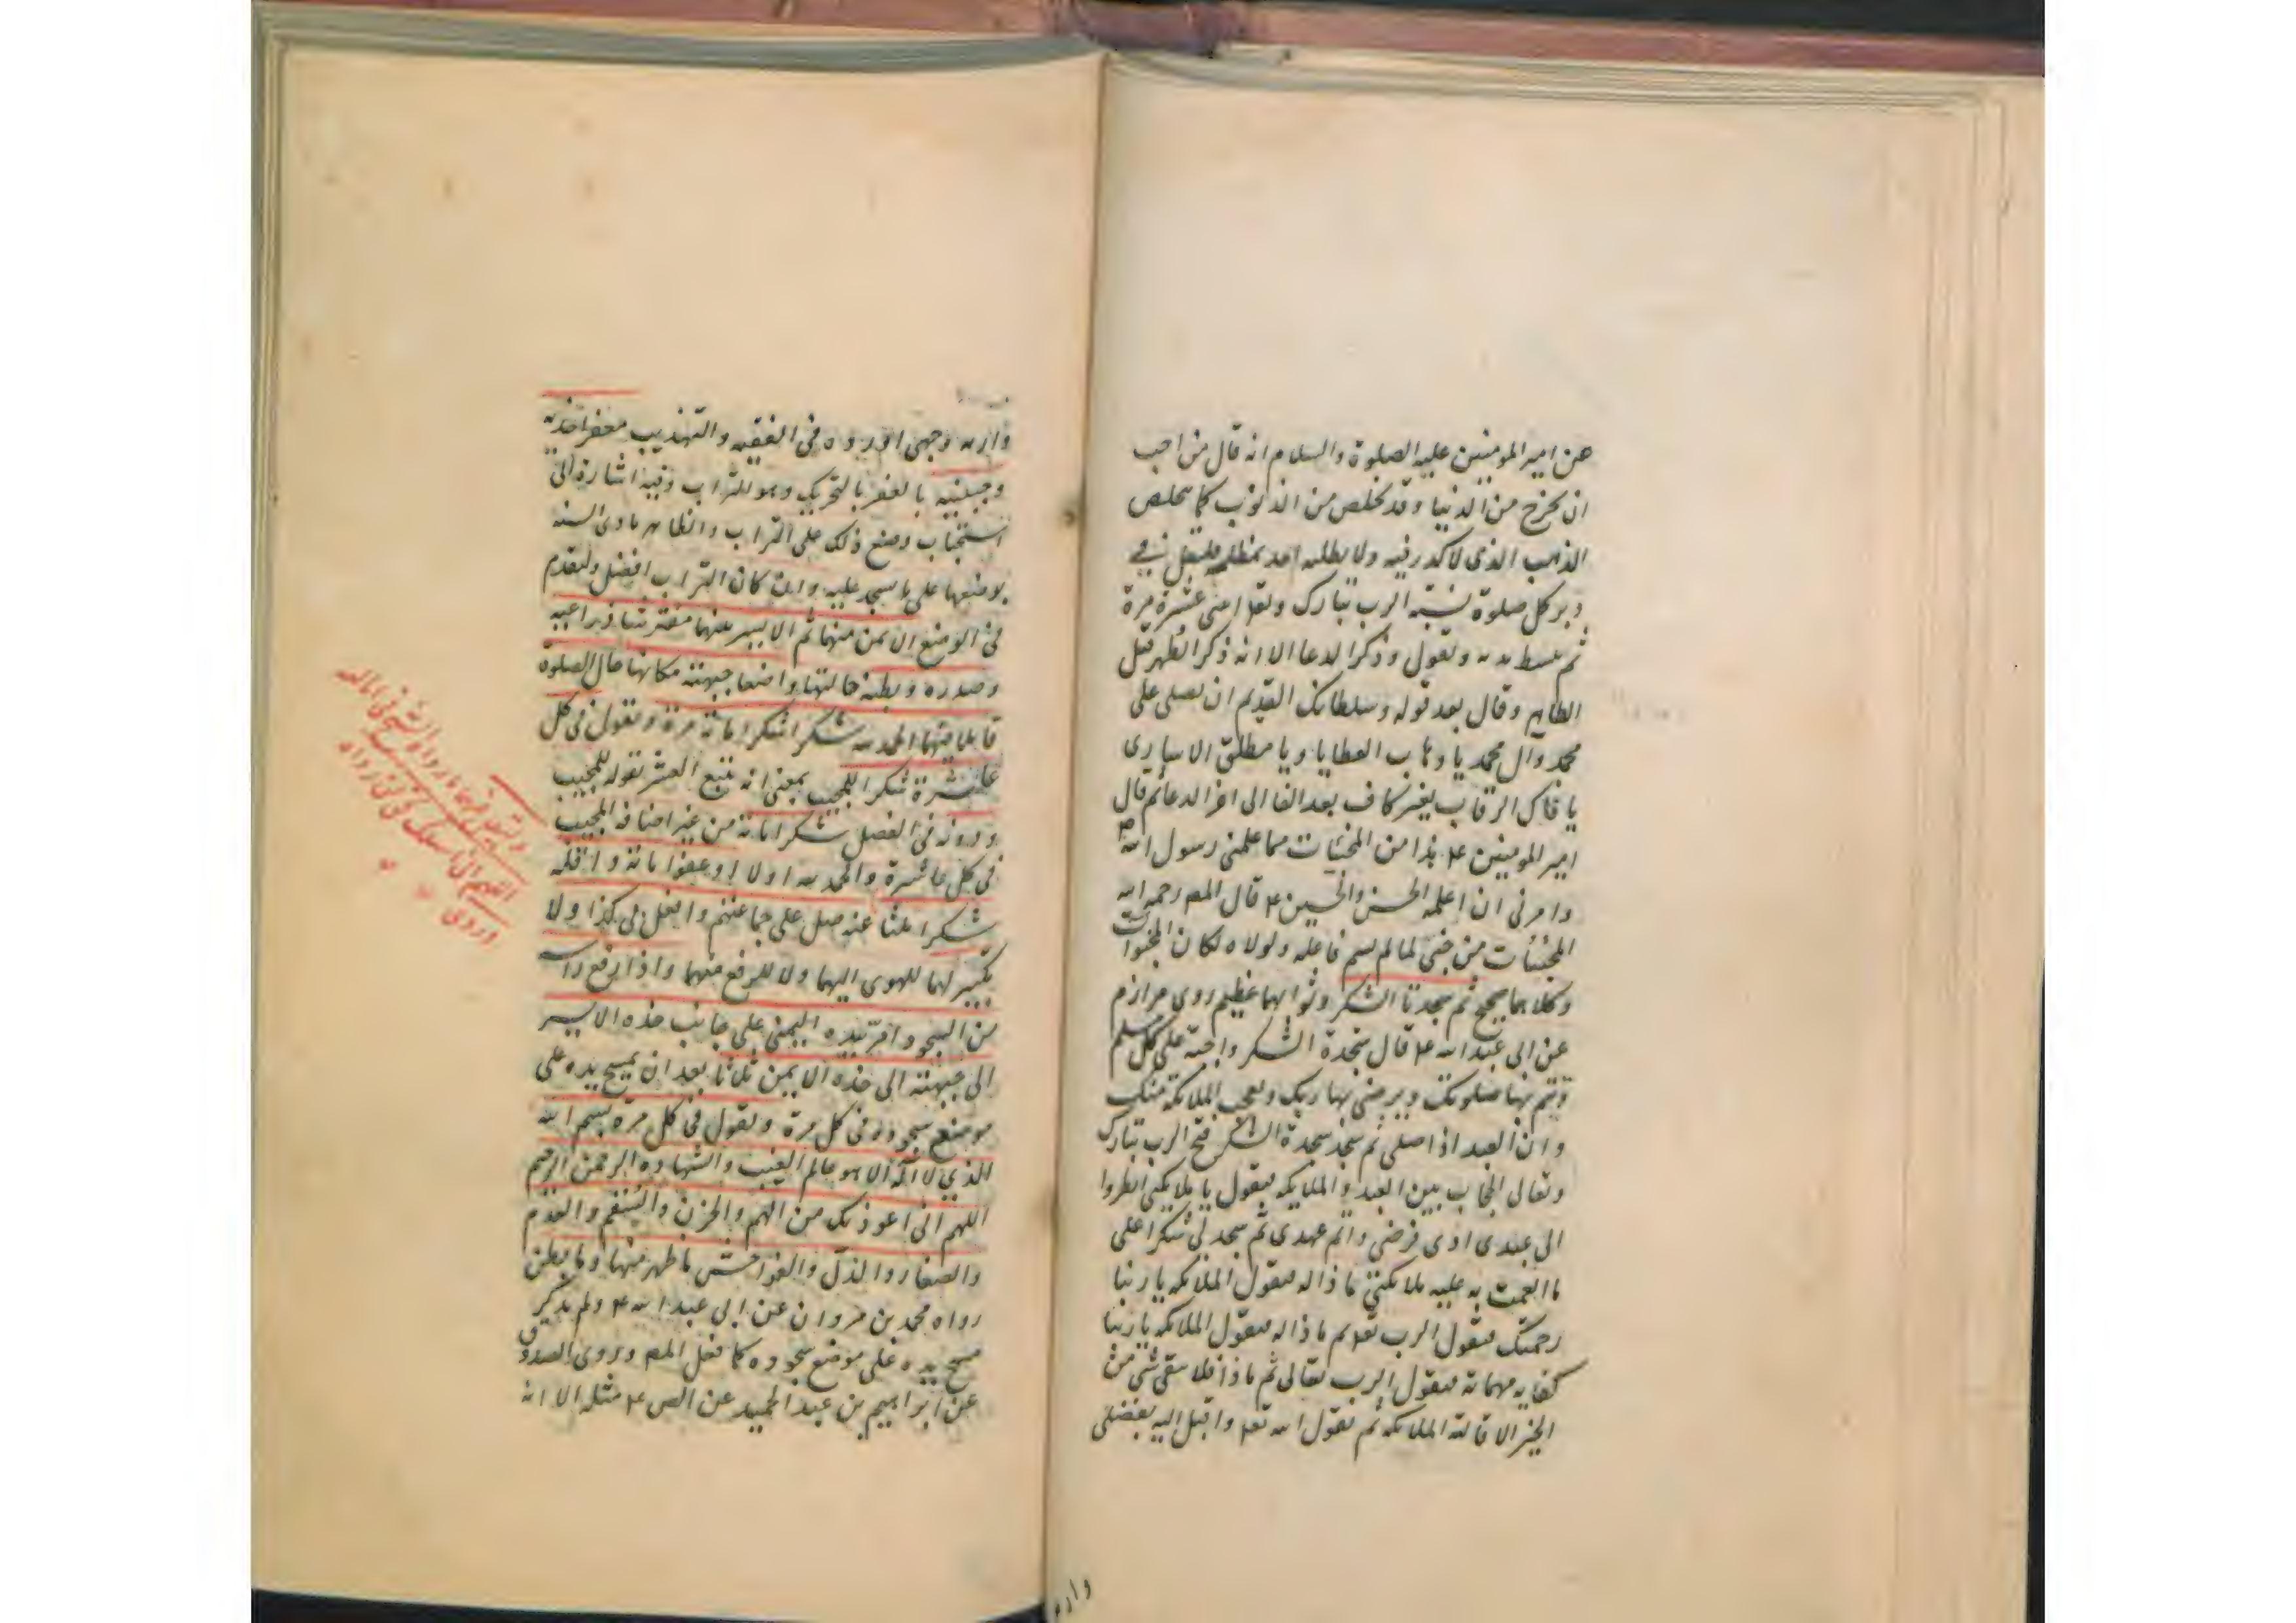 عن امير المومنين عليه الصلوة والسلام انه قال من احب
ان يخرج من الدنيا وقد تخلص من الذنوب كما يتخلص
الذهب الذي لا كدر فيه ولا يطلبه احد بمظلمة فليقل في
دبر كل صلوة نسبة الرب تبارك وتعا اثنى عشرة مرة
ثم يبسط يديه ويقول وذكر الدعا الا انه ذكر الطهر قبل
الطاهر وقال بعد قوله وسلطانك القديم ان تصلى على
محمد وآل محمد يا وهاب العطايا ويا مطلق الاسارى
يا فاك الرقاب بغير كاف بعد الفا الى اخر الدعا ثم قال
امير المومنين ع هذا من المخبيات مما علمنى رسول الله ص
وامرنى ان اعلمه الحسن والحسين ع قال المص رحمه الله
المخبئات من خبى لما لم يسم فاعله ولولاه لكان المخبوات
وكلاهما صحيح ثم سجدتا الشكر وثوابهما عظيم روى مرازم
عن ابى عبد الله ع قال سجدة الشكر واجبة على كل مسلم
تتم بها صلوتك ويرضى بها ربك وتعجب الملائكة منك
وان العبد اذا صلى ثم سجد سجدة الشكر فتح الرب تبارك
وتعالى الحجاب بين العبد والملايكه فيقول يا ملايكتى انظروا
الى عبدى ادى فرضى واتم عهدى ثم سجد لى شكرا على
ما انعمت به عليه ملائكتى ماذا له فيقول الملائكه يا ربنا
رحمتك فيقول الرب تعا ثم ماذا له فيقول الملائكه يا ربنا
كفايه مهماته فيقول الرب تعالى ثم ماذا فلا يبقى شئ من
الخير الا قالته الملائكه ثم يقول الله تعا واقبل اليه بفضلى
واريه
واريه وجهى اورده فى الفقيه والتهذيب معفرا خديه
وجبينيه بالعفر بالتحريك وهو التراب وفيه اشارة الى
استحباب وضع ذلك على التراب والظاهر تادى السنه
بوضعها على ما يسجد عليه وان كان التراب افضل وليقدم
فى الوضع الايمن منهما ثم الايسر منهما مفترشا ذراعيه
وصدره وبطنه حالتها واضعا جبهته مكانها حال الصلوة
قايلا فيهما الحمد لله شكرا شكرا مائة مرة ويقول فى كل
عاشرة شكرا للمجيب بمعنى انه يتبع العشر بقوله للمجيب
ودونه فى الفضل شكرا مائة من غير اضافة المجيب
فى كل عاشرة والحمد لله اولا او عفوا مائة واقله
شكرا ثلثا عنه صل على جماعتهم وافعل بى كذا ولا
تكبير لهما للهوى اليهما ولا للرفع منهما واذا رفع راسه
من السجود امر يده اليمنى على جانب خده الايسر
الى جبهته الى خده الايمن ثلاثا بعد ان يمسح يده على
موضع سجوده فى كل مرة ويقول فى كل مرة بسم الله
الذي لا اله الا هو عالم الغيب والشهاده الرحمن الرحيم
اللهم انى اعوذ بك من الهم والحزن والسقم والعدم
والصغار والذل والفواحش ما ظهر منها وما بطن
رواه محمد بن مروان عن ابى عبد الله ع ولم يذكر
مسح يده على موضع سجوده كما فعل المص وروى الصدوق
عن ابراهيم بن عبد الحميد عن الص ع مثله الا انه
اللهم انى اسئلك
وروى